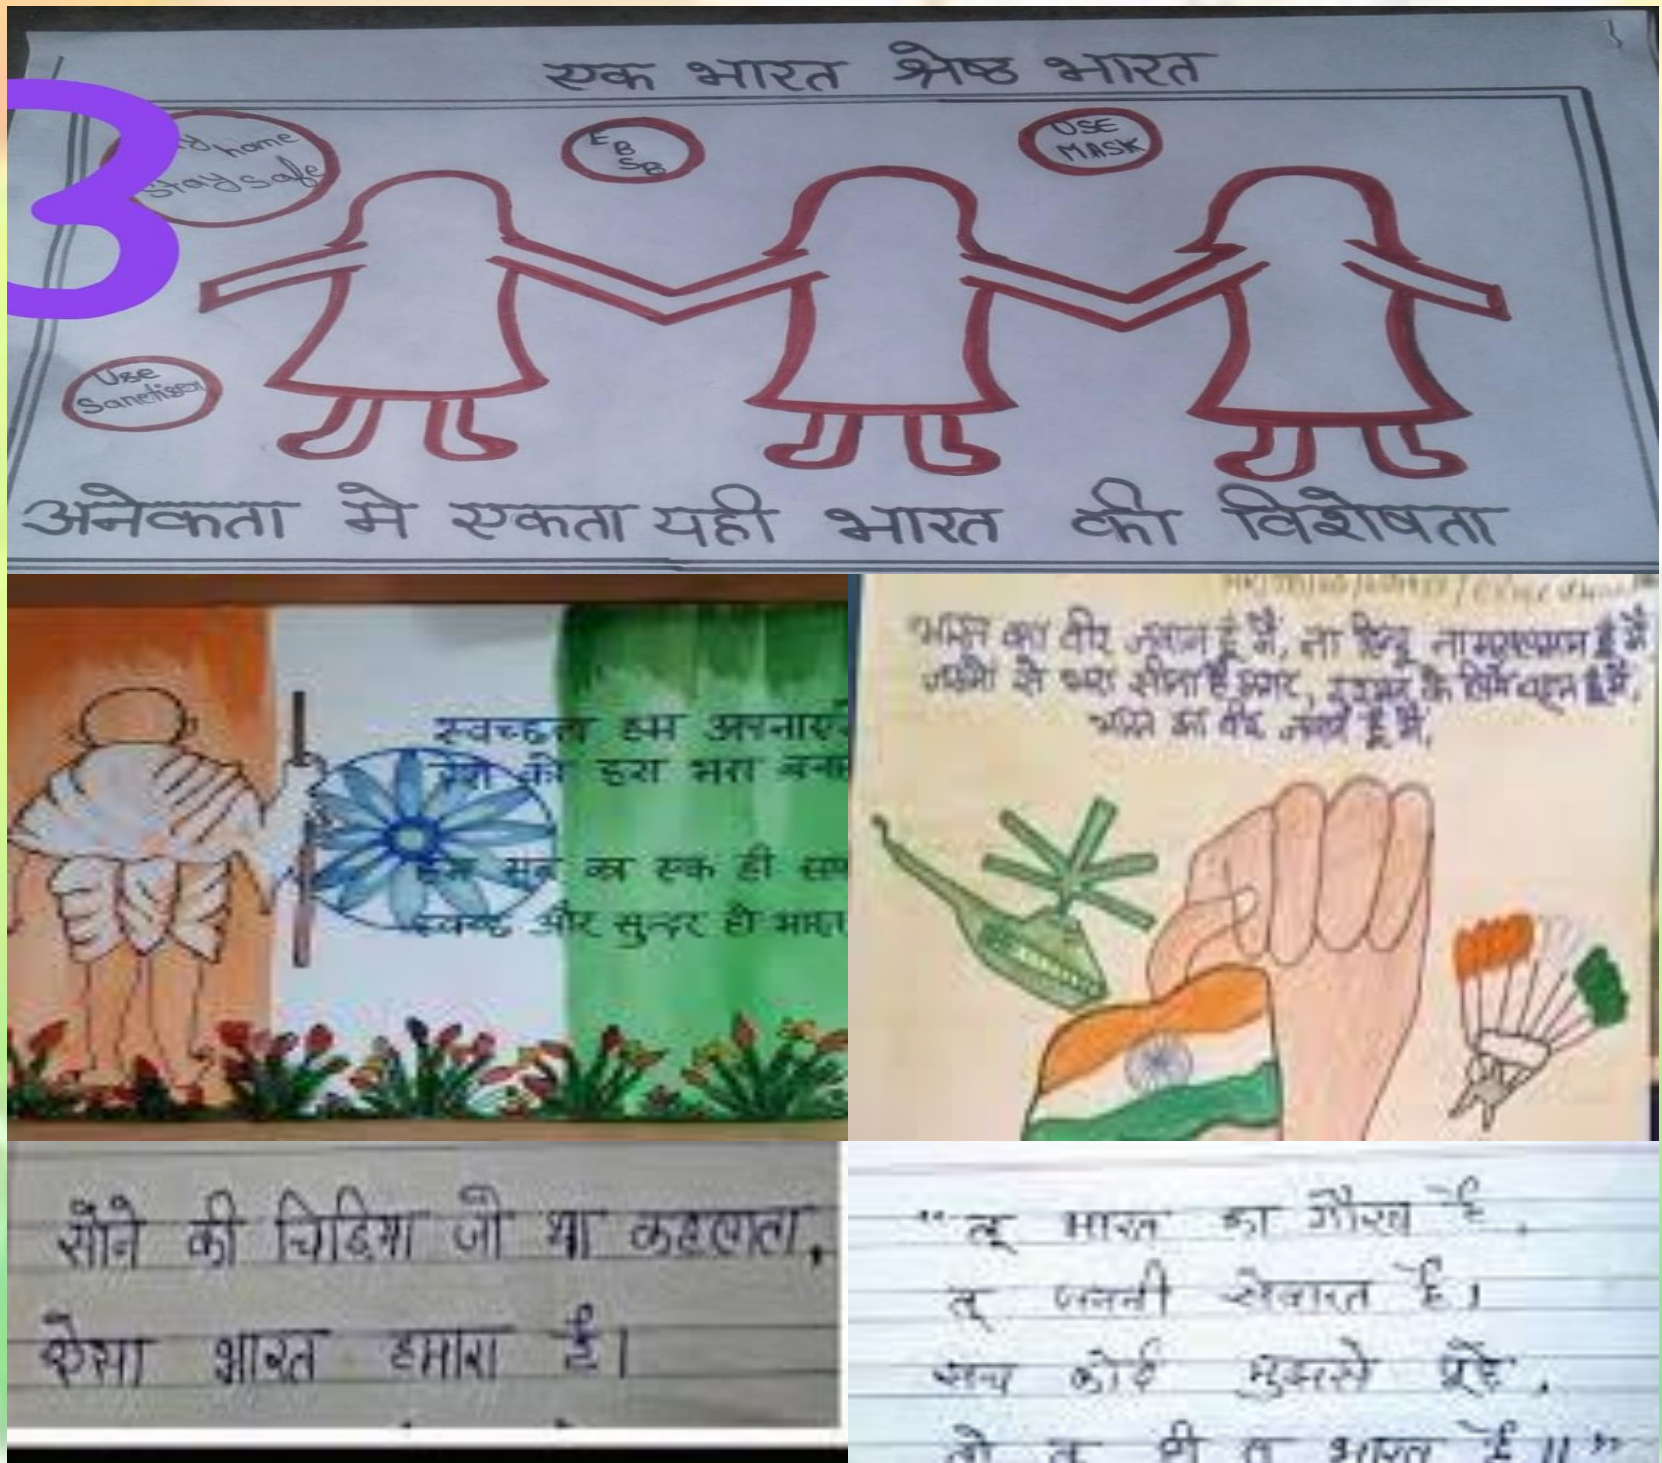 एक भारत श्रेष्ठ भारत
3
home
stay safe
E
B
SB
USE
MASK
Use
Sanetiser
अनेकता मे एकता यही भारत की विशेषता
स्वच्छता हम अपनाए
को हरा भरा बना
सब का एक ही सप
स्वच्छ और सुन्दर हो भारत
भारत का वीर जवान हूँ मैं, ना हिन्दू ना मुसलमान हूँ मैं
जख्मो से भरा सीना है मगर, के लिये चट्टान हूँ मैं,
भारत का वीर जवान हूँ मैं,
सोने की चिडिया जो था कहलाता,
ऐसा भारत हमारा है।
"तू भारत का गौरव है,
तू जननी सेवारत है।
सच कोई मुझसे पूछे,
तो तू ही तू भारत है॥"